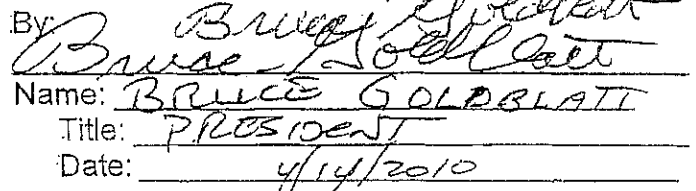 By: Bruce Goldblatt
Bruce Goldblatt
Name: BRUCE GOLDBLATT
Title: PRESIDENT
Date: 4/14/2010